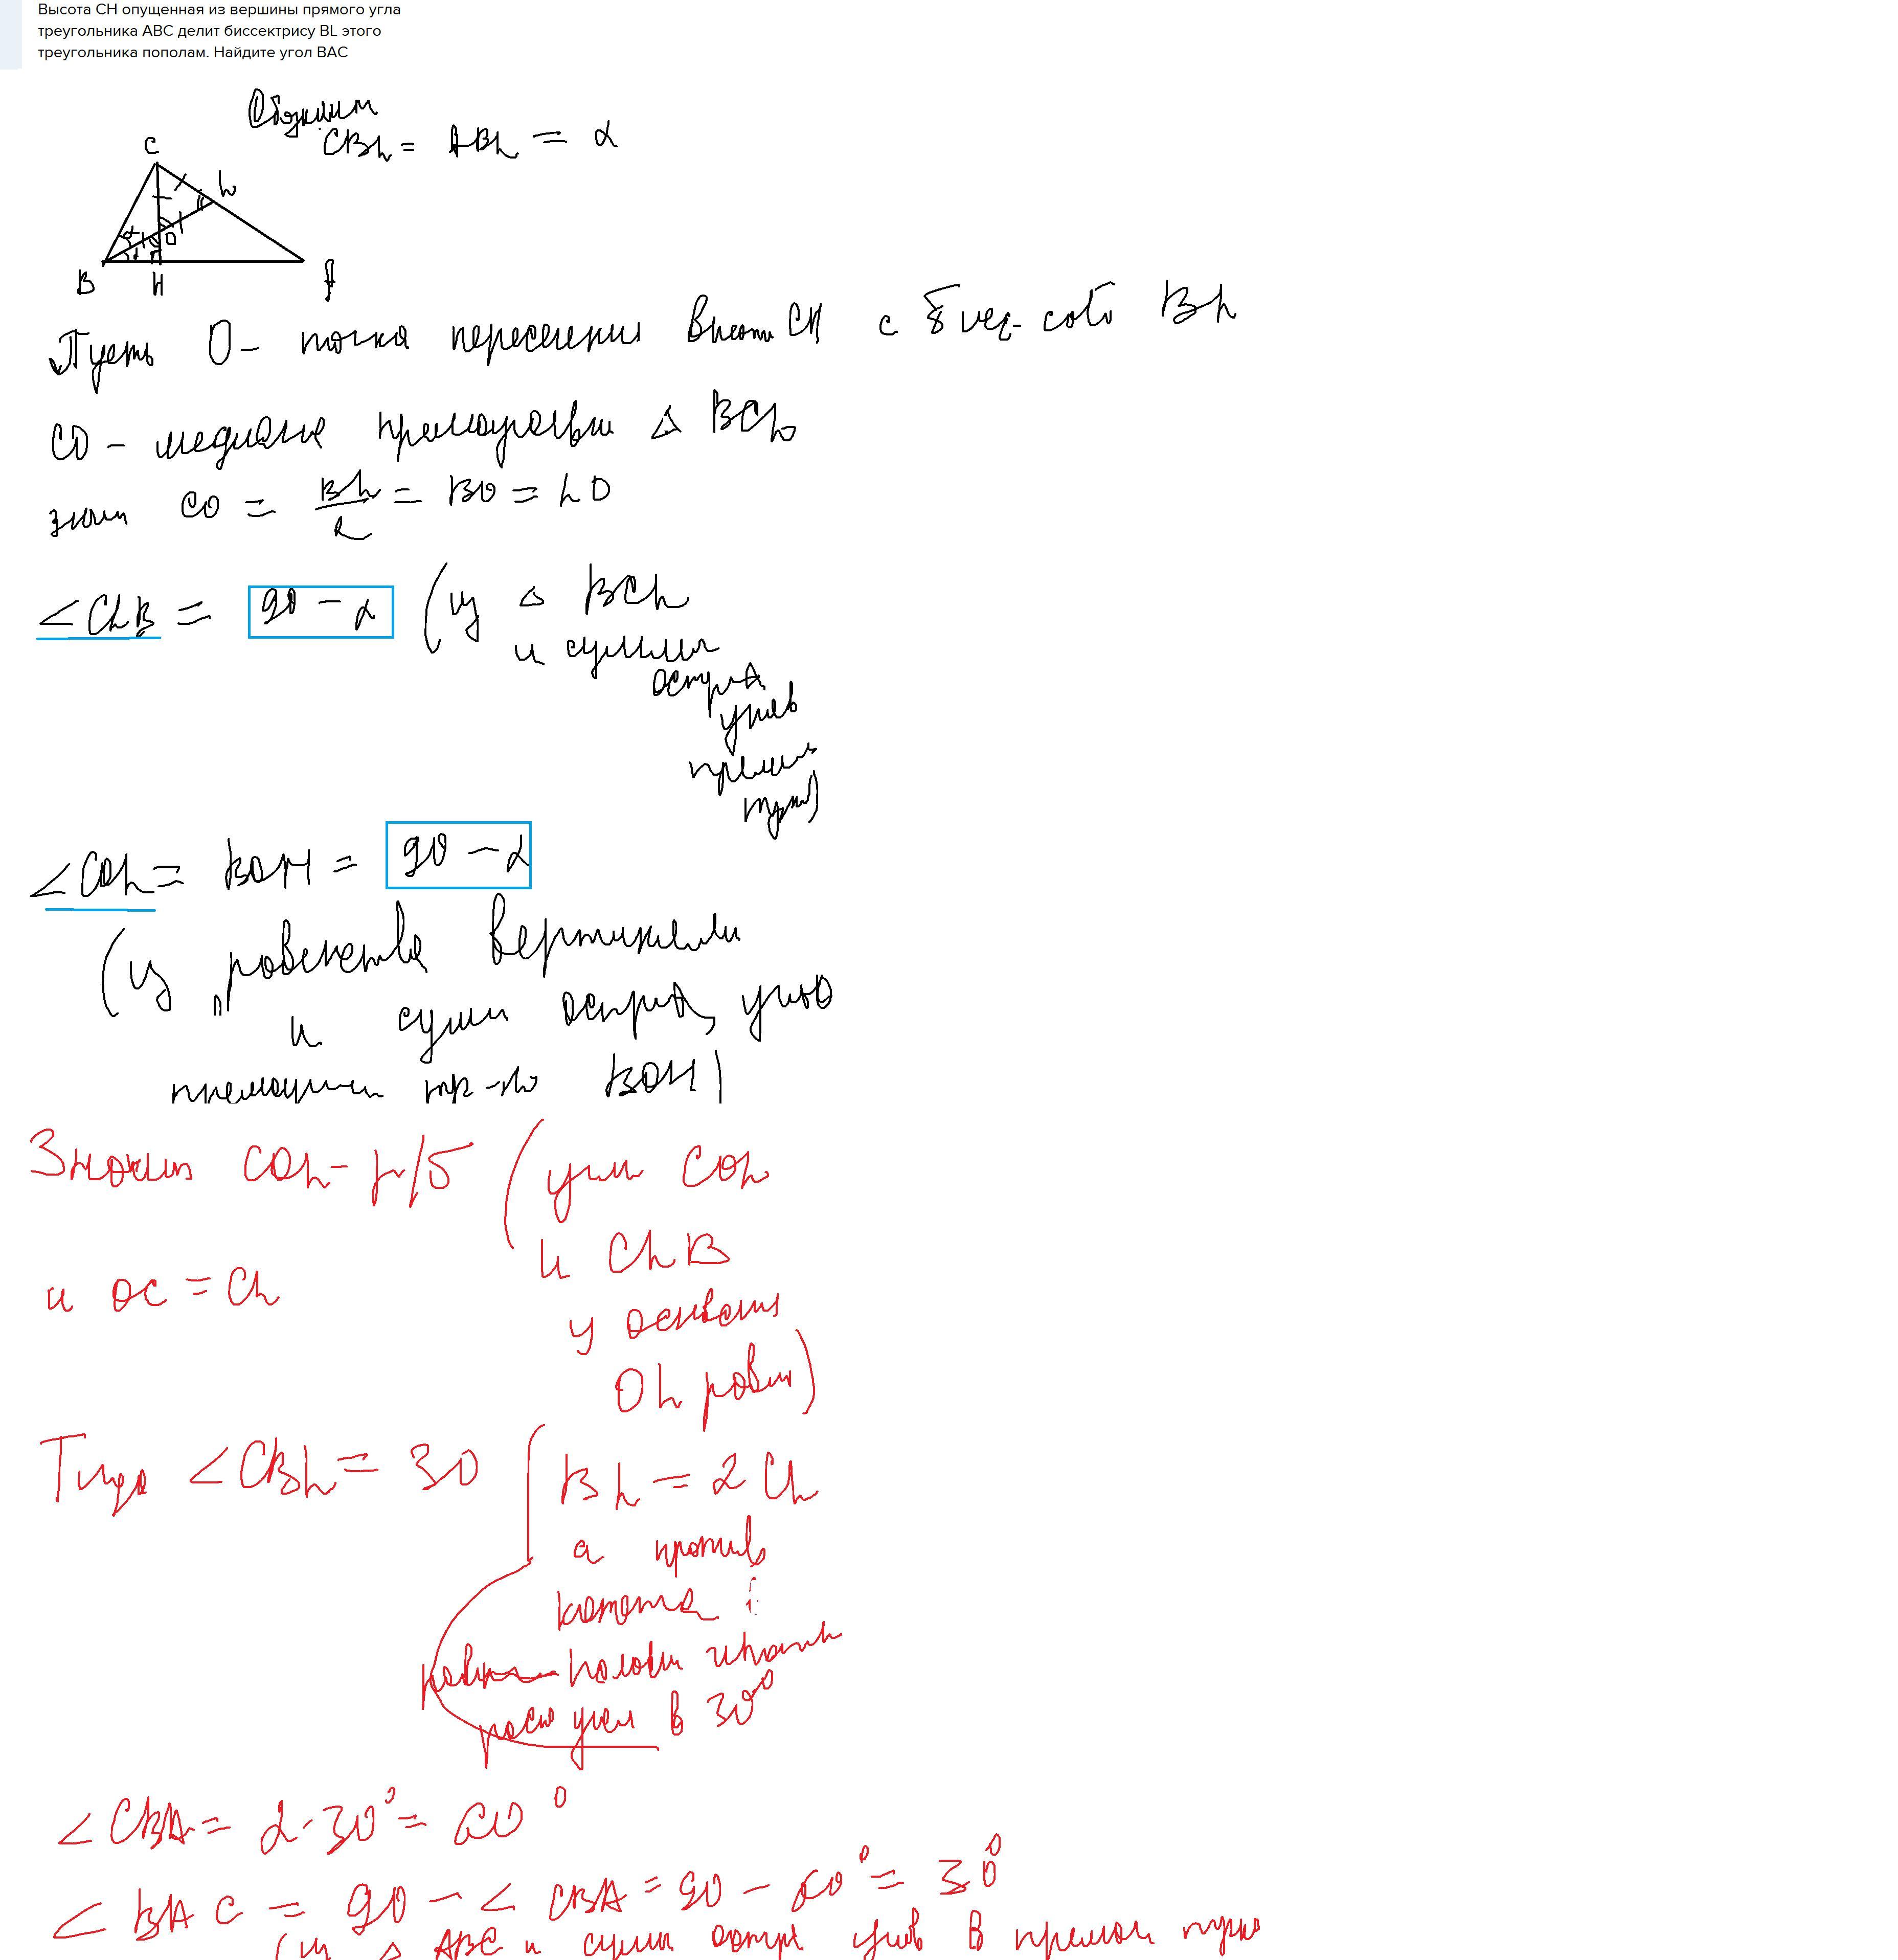 Высота CH опущенная из вершины прямого угла
треугольника ABC делит биссектрису BL этого
треугольника пополам. Найдите угол BAC
Обозначим
CBL = ABL = α
C
L
α
O
α
B
H
A
Пусть O - точка пересечения высоты CH с биссек-сой BL
CO - медиана прямоугольн △ BCL
знач CO = BL/2 = BO = LO
∠CLB = 90 - α (из △ BCL
и суммы
острых
углов
прямоу
треуг)
∠COL = BOH = 90 - α
(из равенства вертикальн
и суммы острых углов
прямоуголь тр-ка BOH)
Значит COL - р/б (углы COL
и CLB
и OC = CL
у основания
OL равны)
Тогда ∠CBL = 30
BL = 2CL
а против
катета
равн полови гипотен
угол в 30°
∠CBA = 2·30° = 60°
∠BAC = 90 - ∠CBA = 90 - 60° = 30°
(из △ ABC и суммы остр углов в прямоу